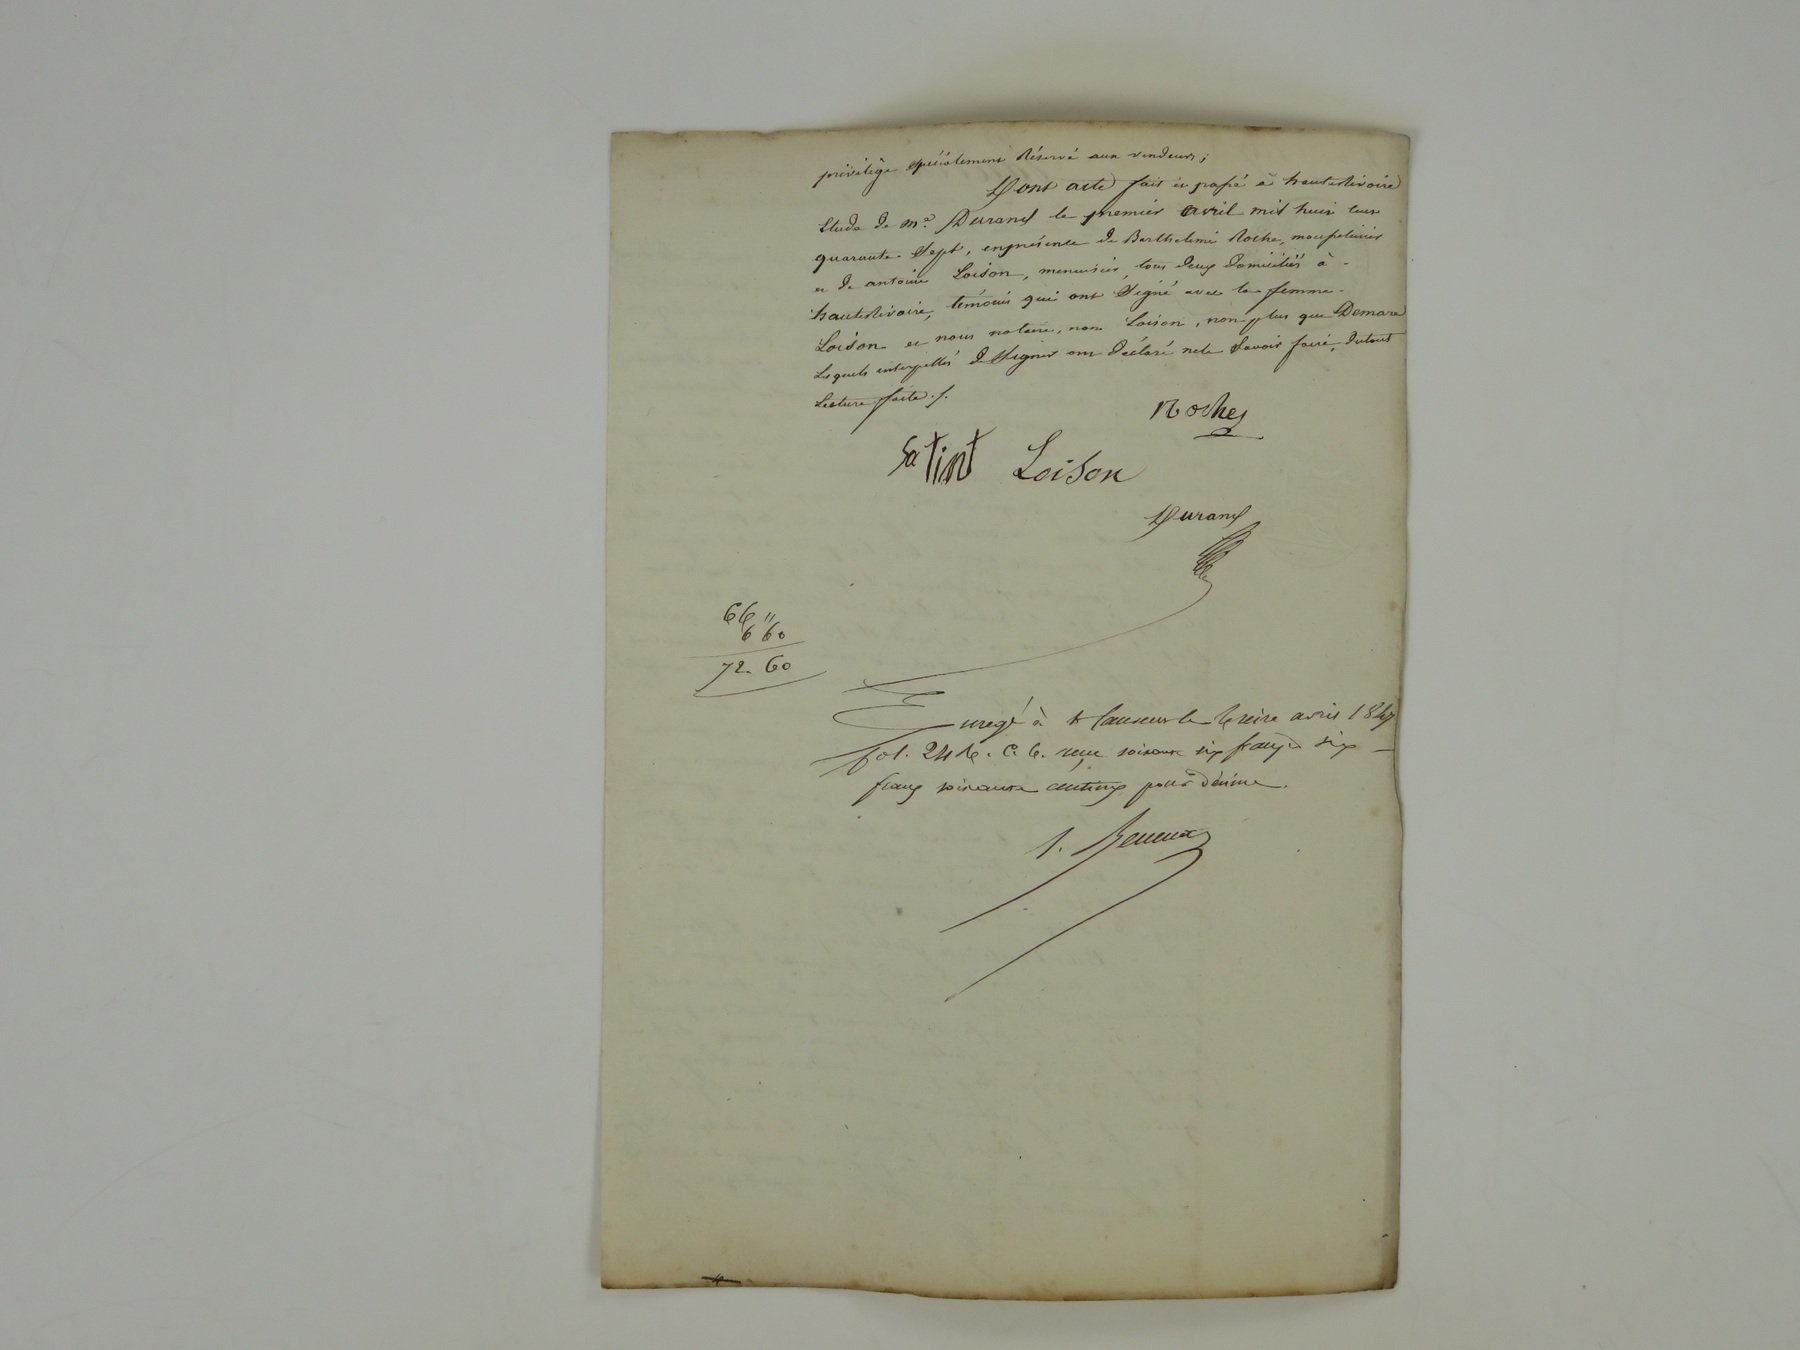 privilège spécialement Réservé aux vendeurs ;
Dont acte fait et passé à hauterivoire
Etude de me. Durand le premier avril mil huit cent
quarante Sept, en présence de Barthelemi Roche,
et de antoine Loison, menuisier, tous deux domiciliés à
hauterivoire, témoins qui ont Signé avec la femme
Loison et nous notaire, non Loison, non plus que Demare
Lesquels interpellés de Signer ont déclaré ne le Savoir faire, dutout
Lecture faite ./.
Roche
Satint Loison
Durand
66 "
6 60
72. 60
Enregé à St Laurent le treize avril 1847
fol. 24 R. C. 6. reçu soixante six francs six
francs soixante centimes pour décime.